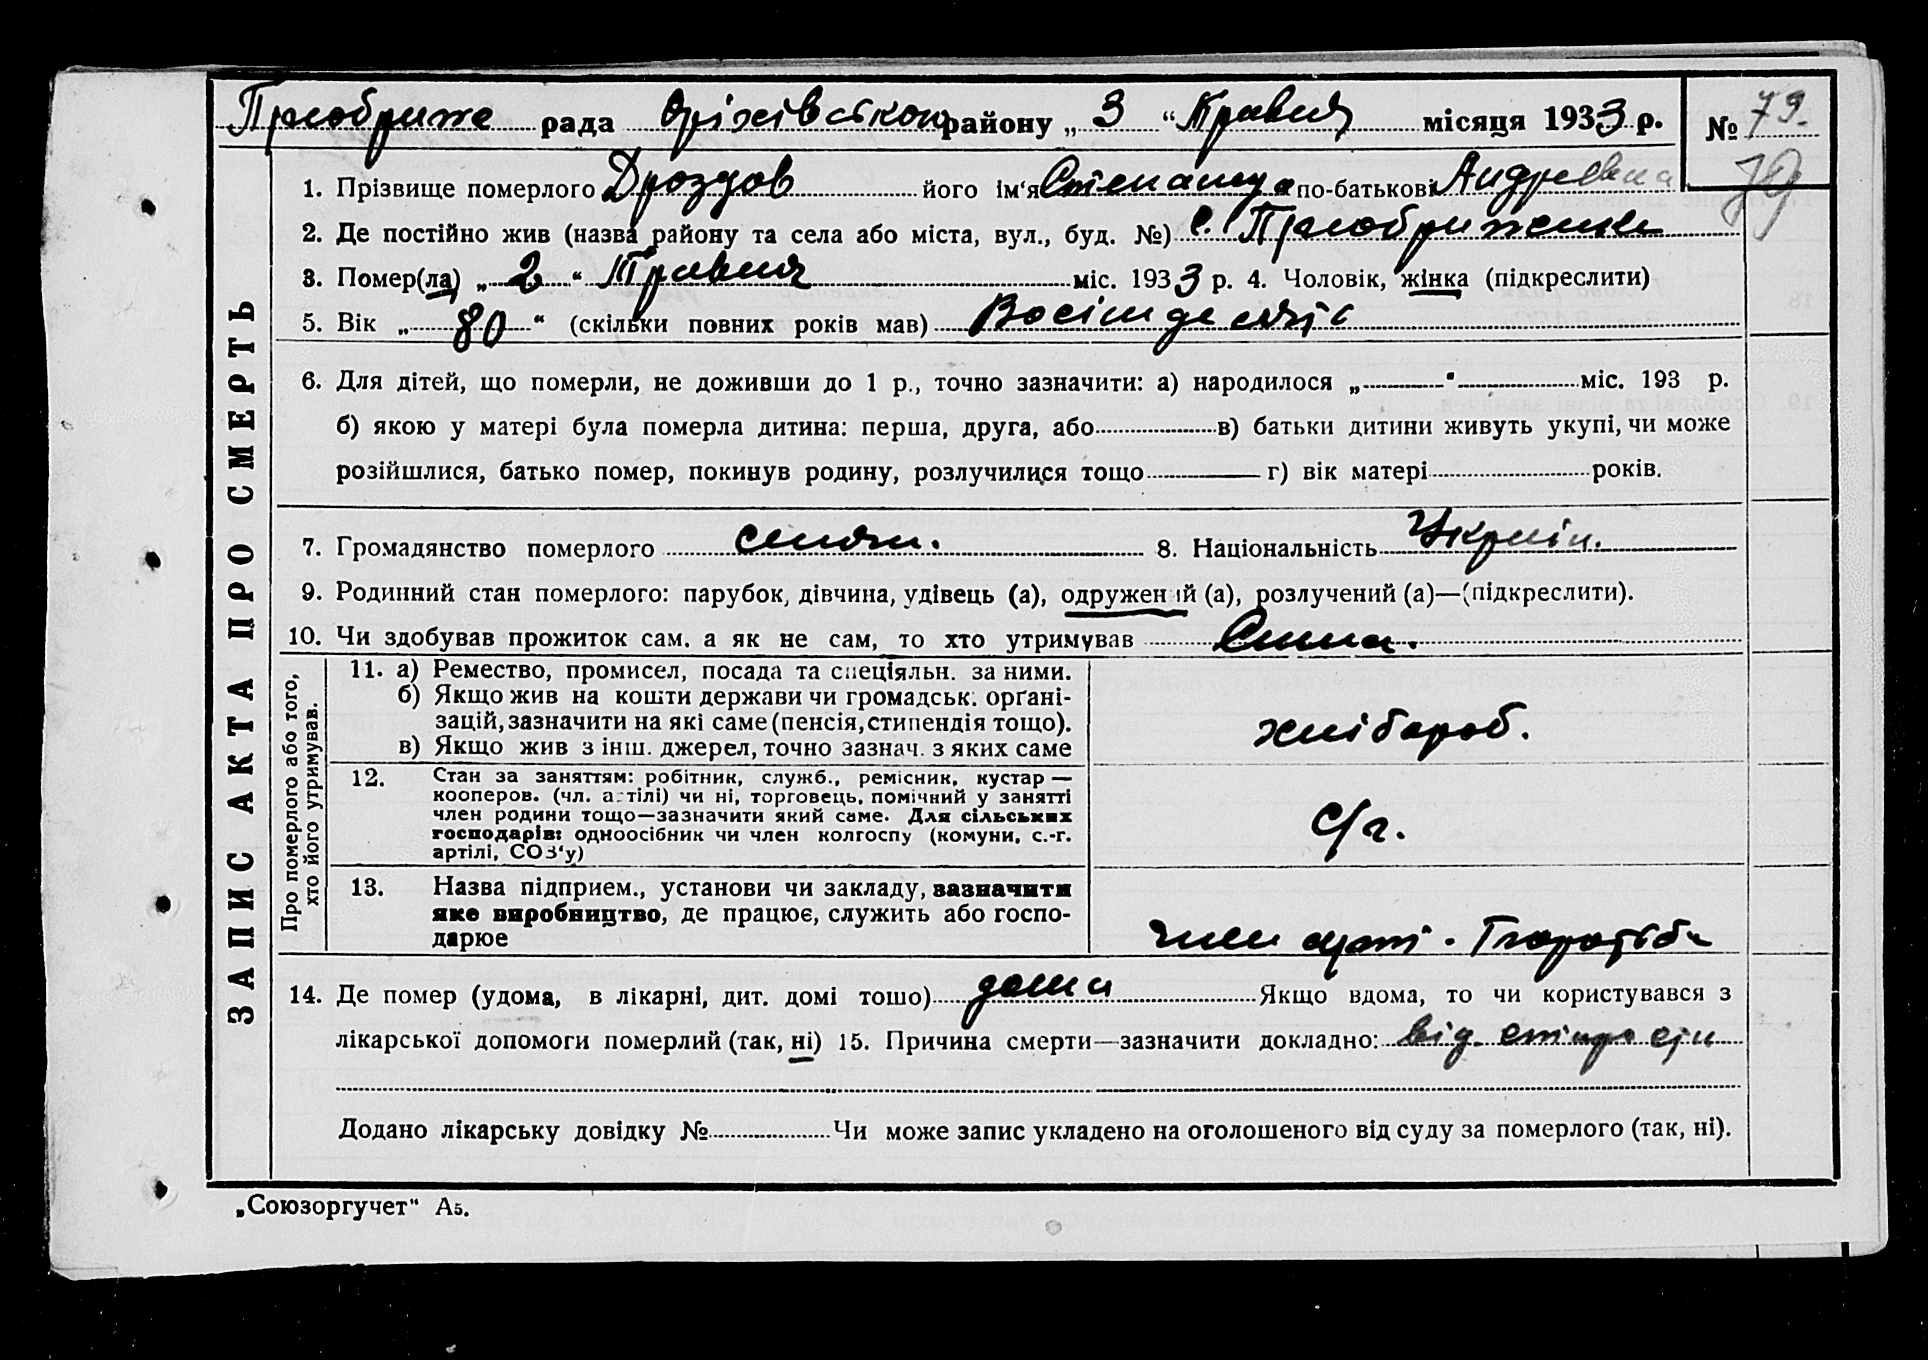 Преображе рада Оріхівського району „3“ Травня місяця 1933 р. № 79.
79
1. Прізвище померлого Дроздов його ім'я по-батькові Андреевна
2. Де постійно жив (назва району та села або міста, вул., буд. №) с. Преображенка
3. Помер(ла) „2“ Травня міс. 1933 р. 4. Чоловік, жінка (підкреслити)
5. Вік „80“ (скільки повних років мав) Восімдесят
6. Для дітей, що померли, не доживши до 1 р., точно зазначити: а) народилося „ “ міс. 193 р.
б) якою у матері була померла дитина: перша, друга, або в) батьки дитини живуть укупі, чи може
розійшлися, батько помер, покинув родину, розлучилися тощо г) вік матері років.
7. Громадянство померлого селян. 8. Національність Україн.
9. Родинний стан померлого: парубок, дівчина, удівець (а), одружений (а), розлучений (а)—(підкреслити).
10. Чи здобував прожиток сам, а як не сам, то хто утримував Сама.
ЗАПИС АКТА ПРО СМЕРТЬ
Про померлого або того,
хто його утримував.
11. а) Ремество, промисел, посада та спеціяльн. за ними.
б) Якщо жив на кошти держави чи громадськ. органі-
зацій, зазначити на які саме (пенсія, стипендія тощо).
в) Якщо жив з інш. джерел, точно зазнач. з яких саме
хлібороб.
12. Стан за заняттям: робітник, служб., ремісник, кустар —
кооперов. (чл. артілі) чи ні, торговець, помічний у занятті
член родини тощо—зазначити який саме. Для сільських
господарів: одноосібник чи член колгоспу (комуни, с.-г.
артілі, СОЗ'у)
с/г.
13. Назва підприєм., установи чи закладу, зазначити
яке виробництво, де працює, служить або госпо-
дарює
член арті.
14. Де помер (удома, в лікарні, дит. домі тощо) дома Якщо вдома, то чи користувався з
лікарської допомоги померлий (так, ні) 15. Причина смерти—зазначити докладно: від старости
Додано лікарську довідку № Чи може запис укладено на оголошеного від суду за померлого (так, ні).
„Союзоргучет" А5.